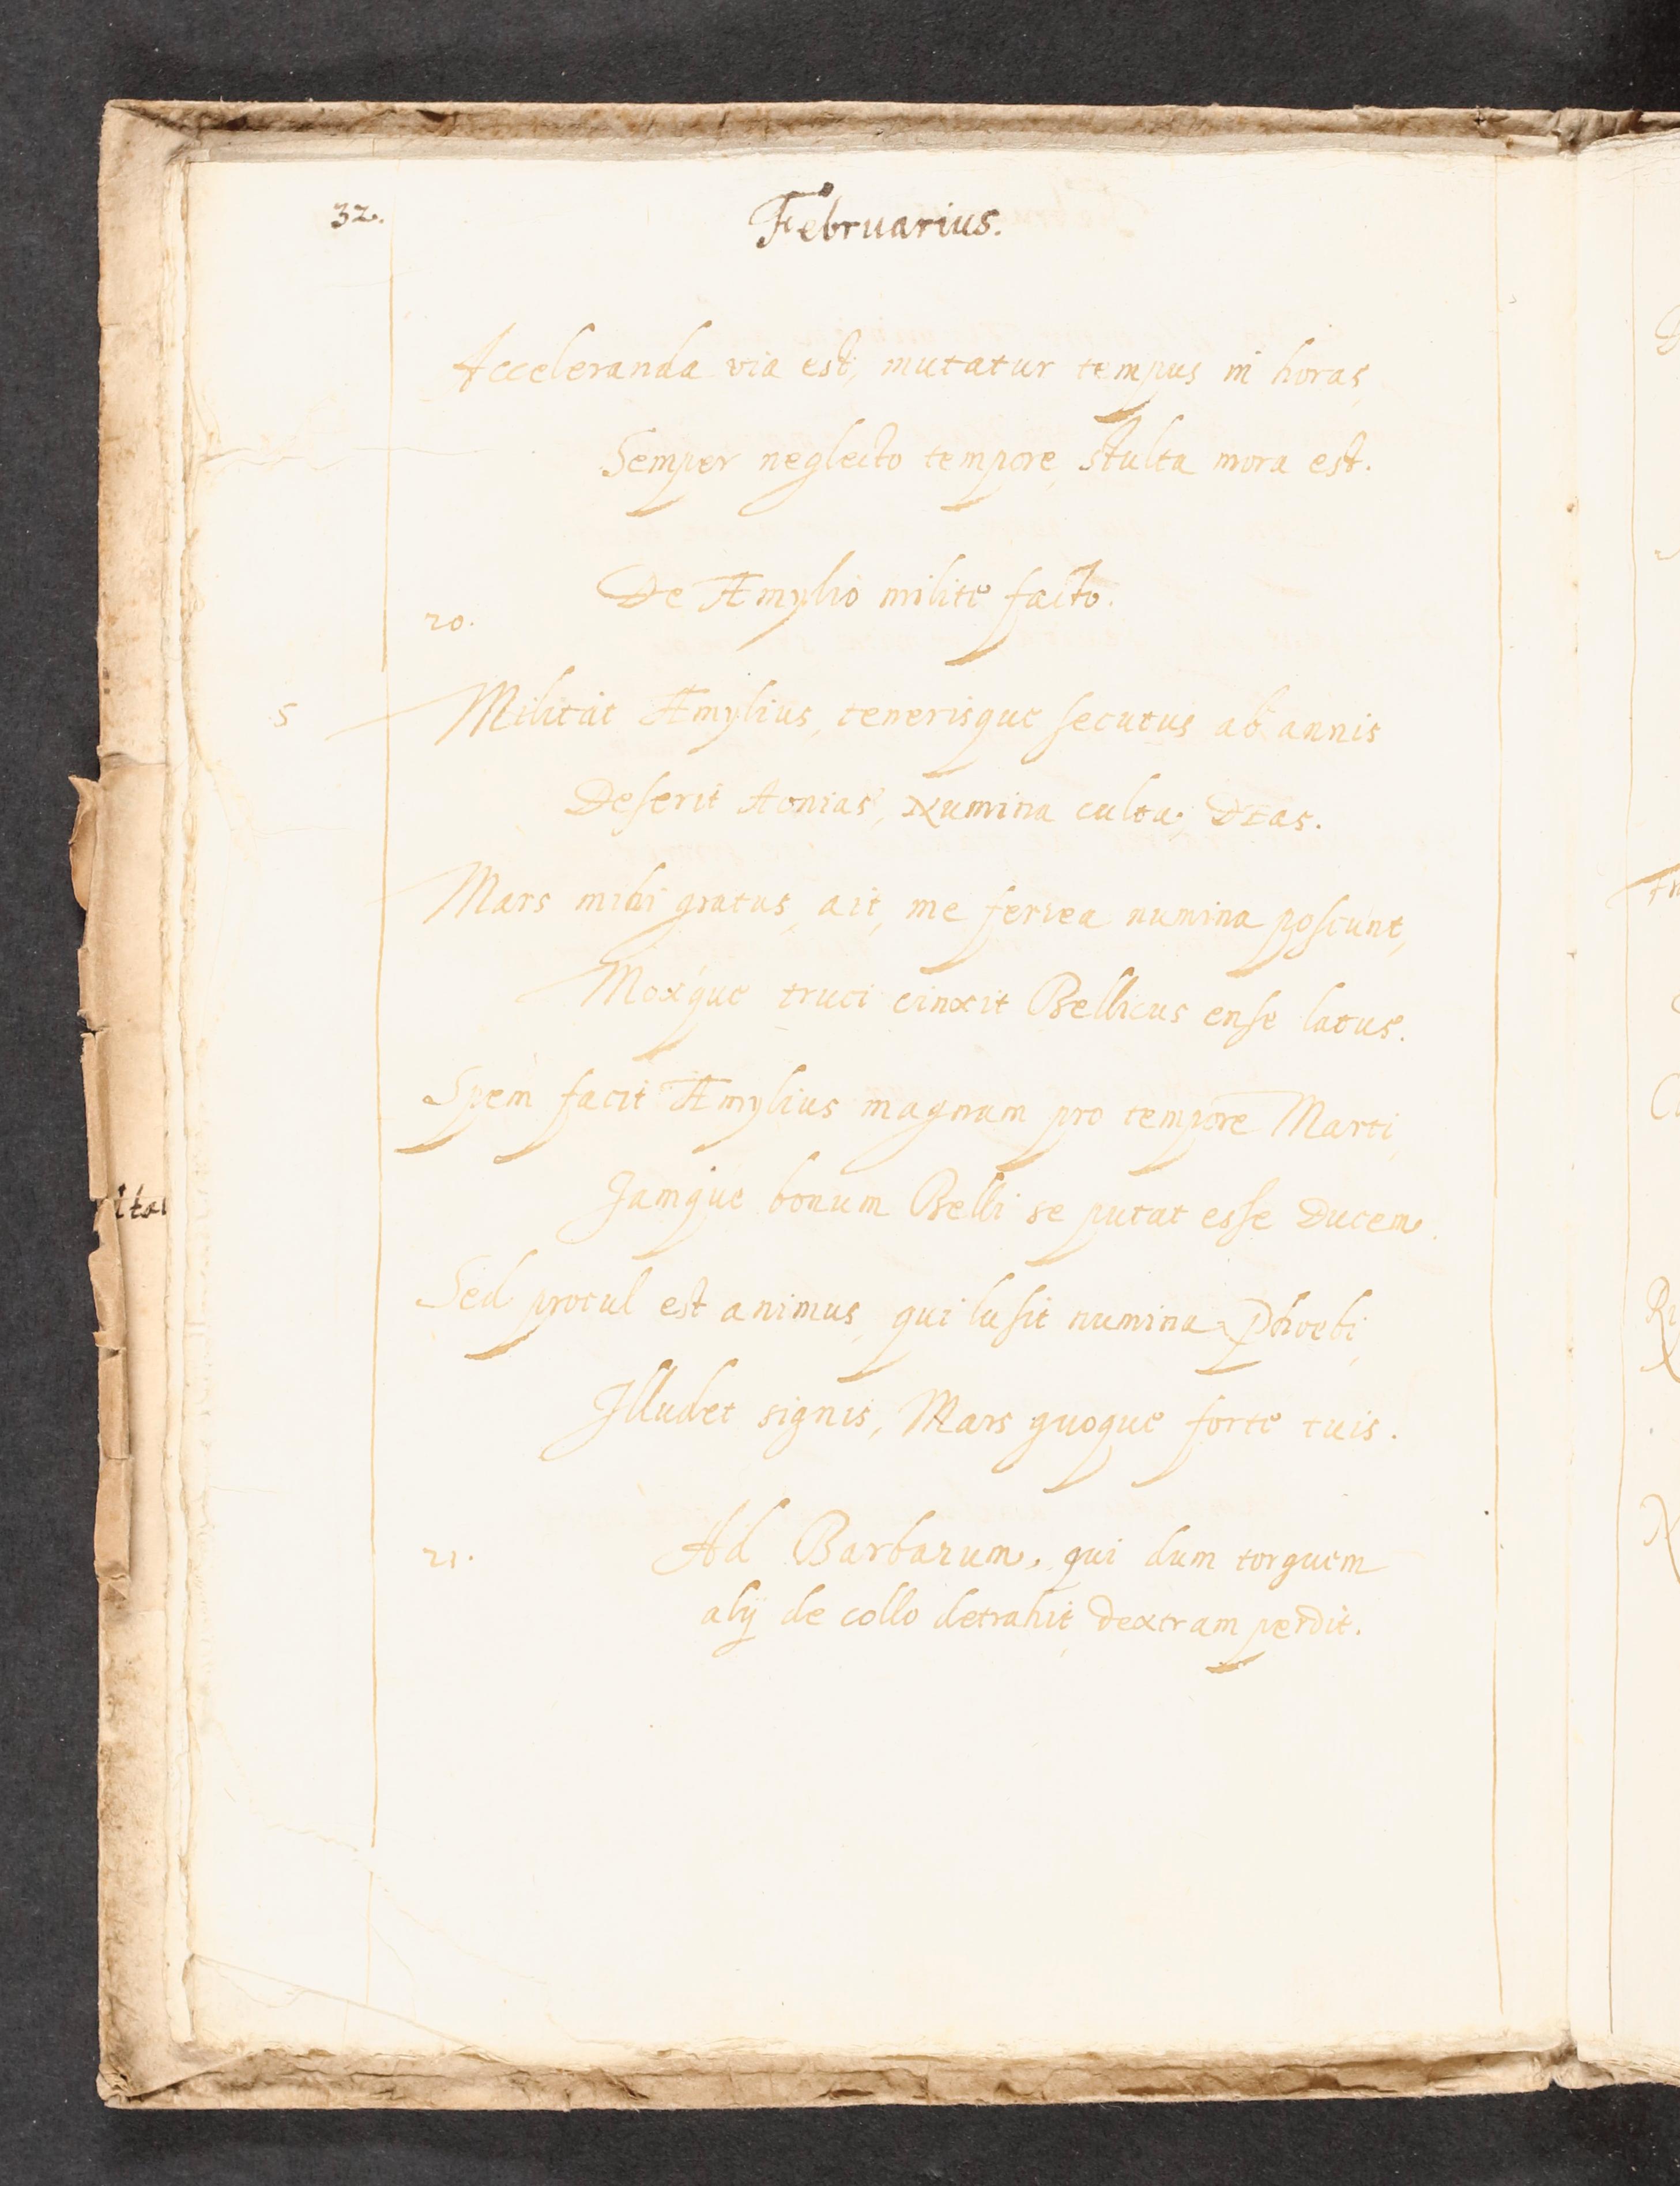 32.
Februarius.
Acceleranda via est, mutatur tempus in horas,
Semper neglecto tempore, stulta mora est.
20.
De Æmylio milite facto.
5
Militat Æmylius, tenerisque secutus ab annis
Deserit Aonias, Numina culta, Deas.
Mars mihi gratus, ait, me ferrea numina poscunt,
Moxque truci cinxit Bellicus ense latus.
Spem facit Æmylius magnam pro tempore Marti,
Jamque bonum Belli se putat esse Ducem.
Sed procul est animus, qui lusit numina Phoebi,
Illudet signis, Mars quoque forte tuis.
21.
Ad Barbarum, qui dum torquem
alij de collo detrahit, dextram perdit.